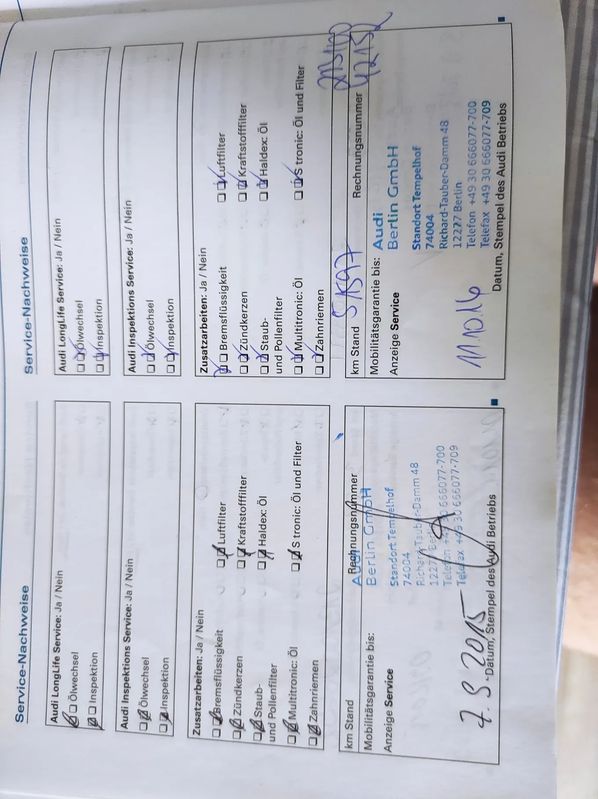 Service-Nachweise
Audi LongLife Service: Ja / Nein
Ölwechsel
Inspektion
Audi Inspektions Service: Ja / Nein
Ölwechsel
Inspektion
Zusatzarbeiten: Ja / Nein
Bremsflüssigkeit Luftfilter
Zündkerzen Kraftstofffilter
Staub- Haldex: Öl
und Pollenfilter
Multitronic: Öl S tronic: Öl und Filter
Zahnriemen
km Stand Rechnungsnummer
Mobilitätsgarantie bis: Audi
Berlin GmbH
Anzeige Service
Standort Tempelhof
74004
Richard-Tauber-Damm 48
12277 Berlin
Telefon +49 30 666077-700
Telefax +49 30 666077-709
7.9.2015
Datum, Stempel des Audi Betriebs
Service-Nachweise
Audi LongLife Service: Ja / Nein
Ölwechsel
Inspektion
Audi Inspektions Service: Ja / Nein
Ölwechsel
Inspektion
Zusatzarbeiten: Ja / Nein
Bremsflüssigkeit Luftfilter
Zündkerzen Kraftstofffilter
Staub- Haldex: Öl
und Pollenfilter
Multitronic: Öl S tronic: Öl und Filter
Zahnriemen
km Stand 51597 Rechnungsnummer 42152
Mobilitätsgarantie bis: Audi
Berlin GmbH
Anzeige Service
Standort Tempelhof
74004
Richard-Tauber-Damm 48
12277 Berlin
Telefon +49 30 666077-700
Telefax +49 30 666077-709
11.10.16
Datum, Stempel des Audi Betriebs